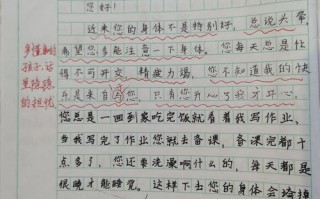 您好!
近来您的身体不是特别好,总说头晕,
希望您多能注意一下身体,您每天总是忙
得不可开交,精疲力竭,您不知道我的快
乐是来自您,只有您开心了我才开心。
您总是一回到家吃完饭就看着我写作业,
当我写完了作业您就去备课,备课完都十
点多了,您还要洗澡啊什么的,每天都是
很晚才能睡觉。这样下去您的身体会垮掉
多懂事的
孩子,话
里
的担忧